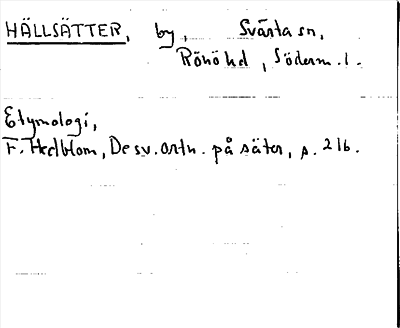 HÄLLSÄTTER, by, Svärta sn,
Rönö hd, Söderm. l.
Etymologi,
F. Hedblom, De sv. ortn. på säter, s. 216.